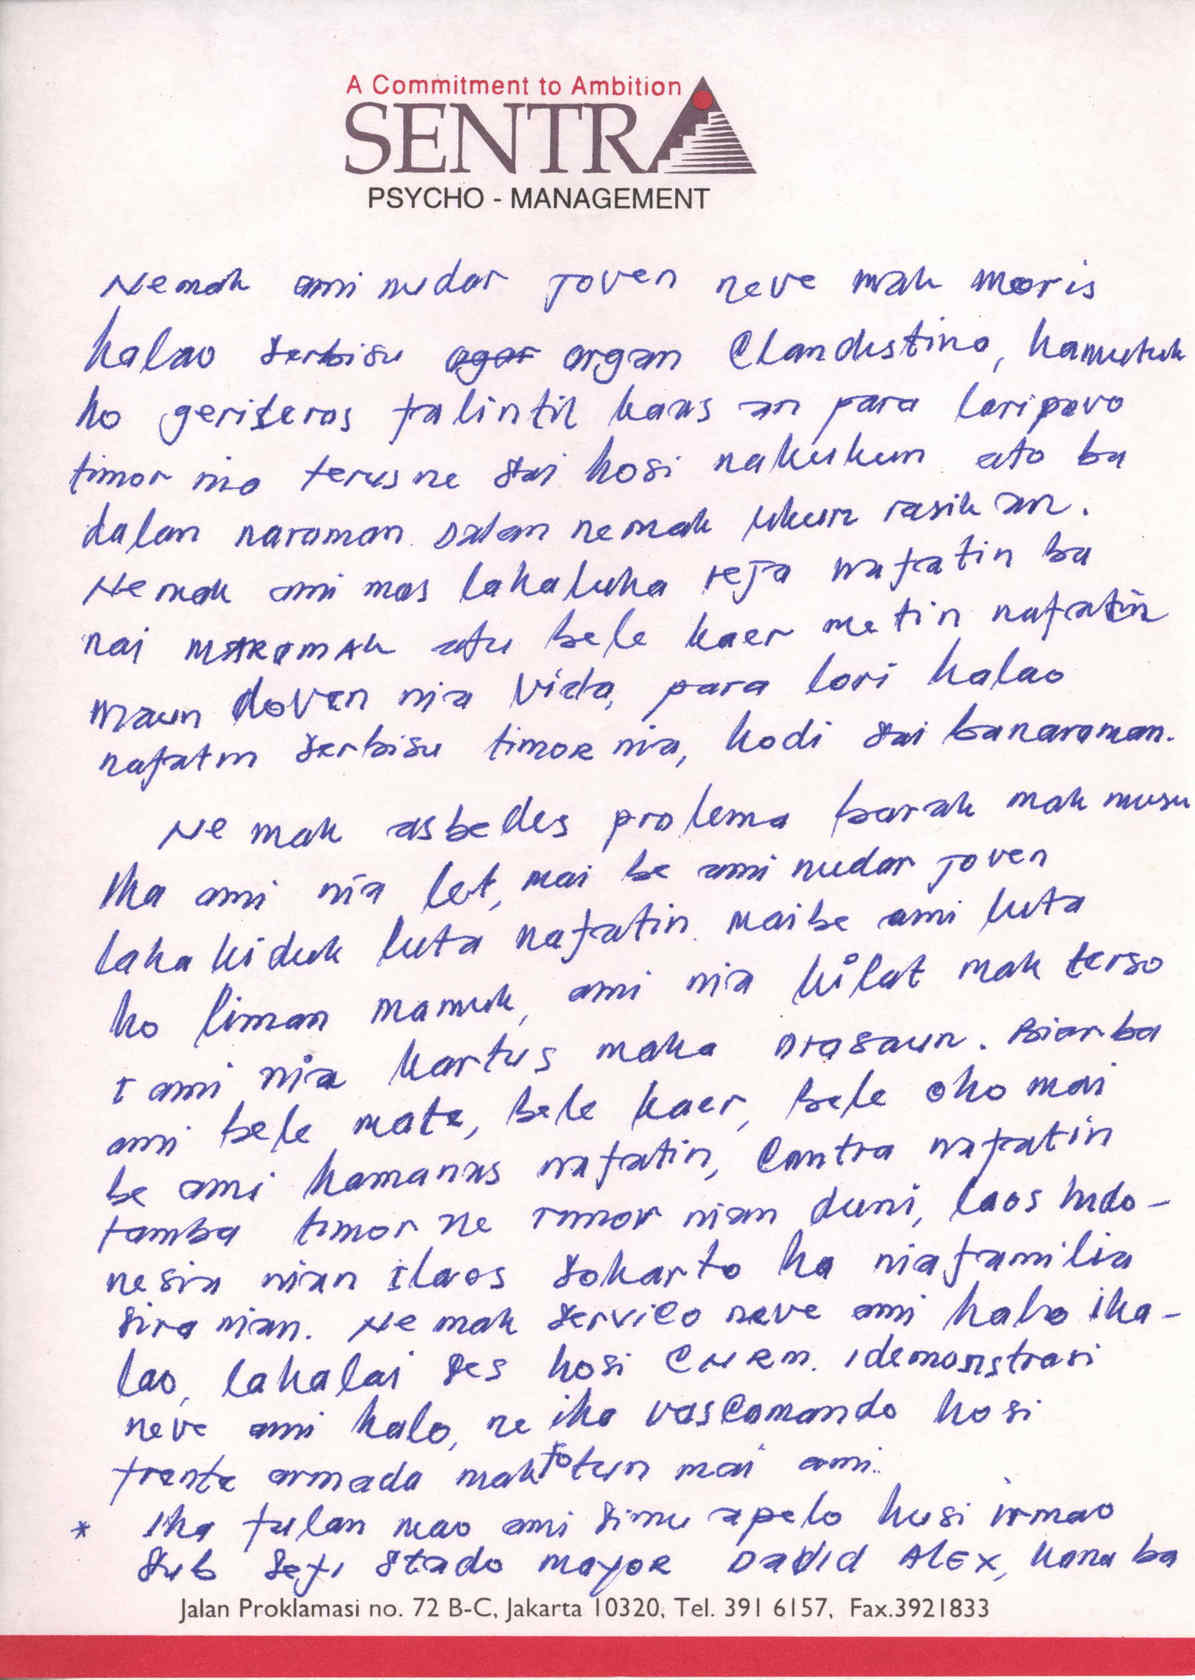 A Commitment to Ambition
SENTRA
PSYCHO - MANAGEMENT
Ne mak ami nudar joven neve mak moris
halao serbisu organ Clandestino, hamutuk
ho gerilseros falintil haas an para lori povo
timor nia terus ne sai hosi nakukun ato ba
dalan naroman. Dalan ne mak ukun rasik an.
Ne mak ami mos lakaluha reja nafatin ba
nai MAROMAK atu bele kaer metin nafatin
maun doven nia vida, para lori halao
nafatin serbisu timor nia, hodi sai banaroman.
Ne mak asbedes prolema barak mak musu
iha ami nia let, mai be ami nudar joven
laha kiduk luta nafatin. Maibe ami luta
ho liman mamuk, ami nia kilat mak terso
i ami nia kartus maka orasaun. Biar ba
ami bele mate, bele kaer, bele oho mai
be ami hamanas nafatin, Contra nafatin
tamba timor ne Timor nian duni, laos Indo-
nesia nian ilaos Soharto ho nia familia
sira nian. Ne mak serviço neve ami halo iha-
lao, lahalai ses hosi CNRM. idemonstrasi
neve ami halo, ne iha vosComando hosi
frente armada mak fo tun mai ami.
* Iha fulan mao ami simu apelo husi irmao
Sub Sefi Stado mayor David Alex, kona ba
Jalan Proklamasi no. 72 B-C, Jakarta 10320, Tel. 391 6157, Fax.3921833